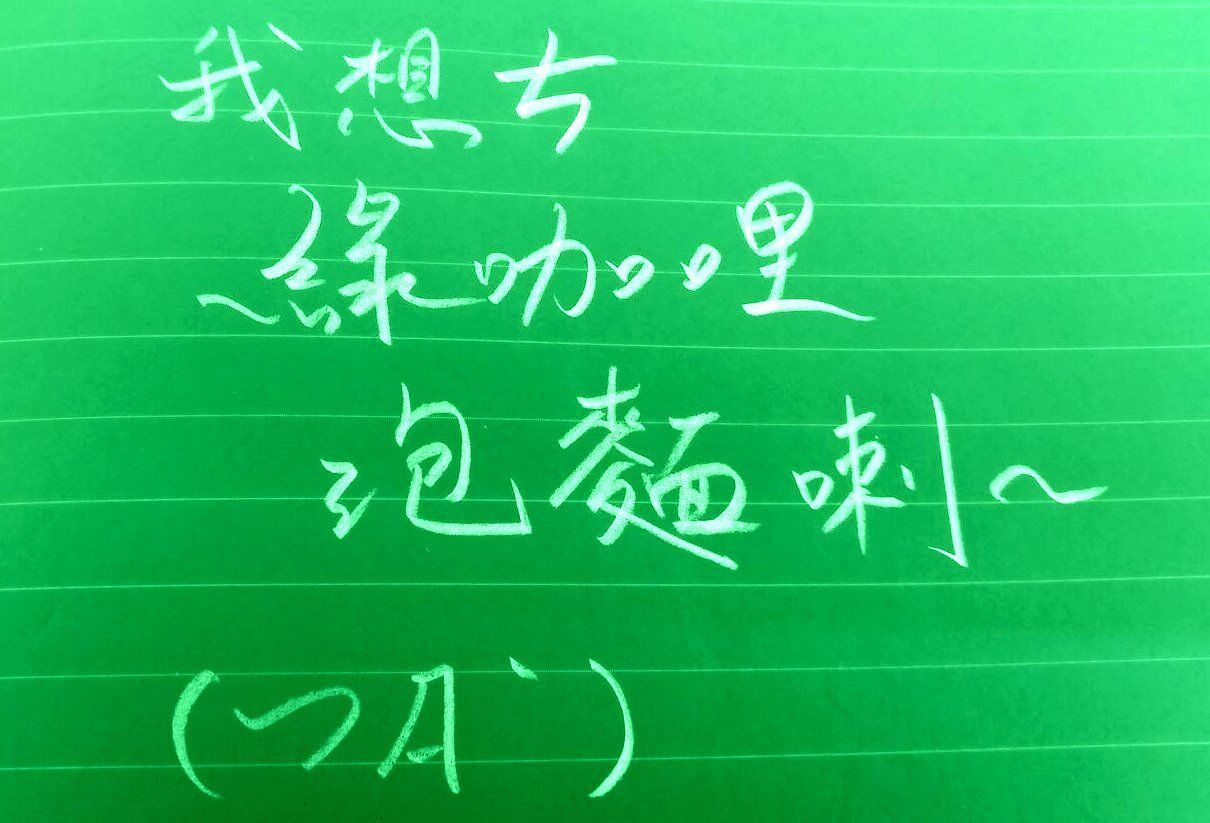 我想ㄘ
~綠咖哩
泡麵喇~
(ㄱA`)